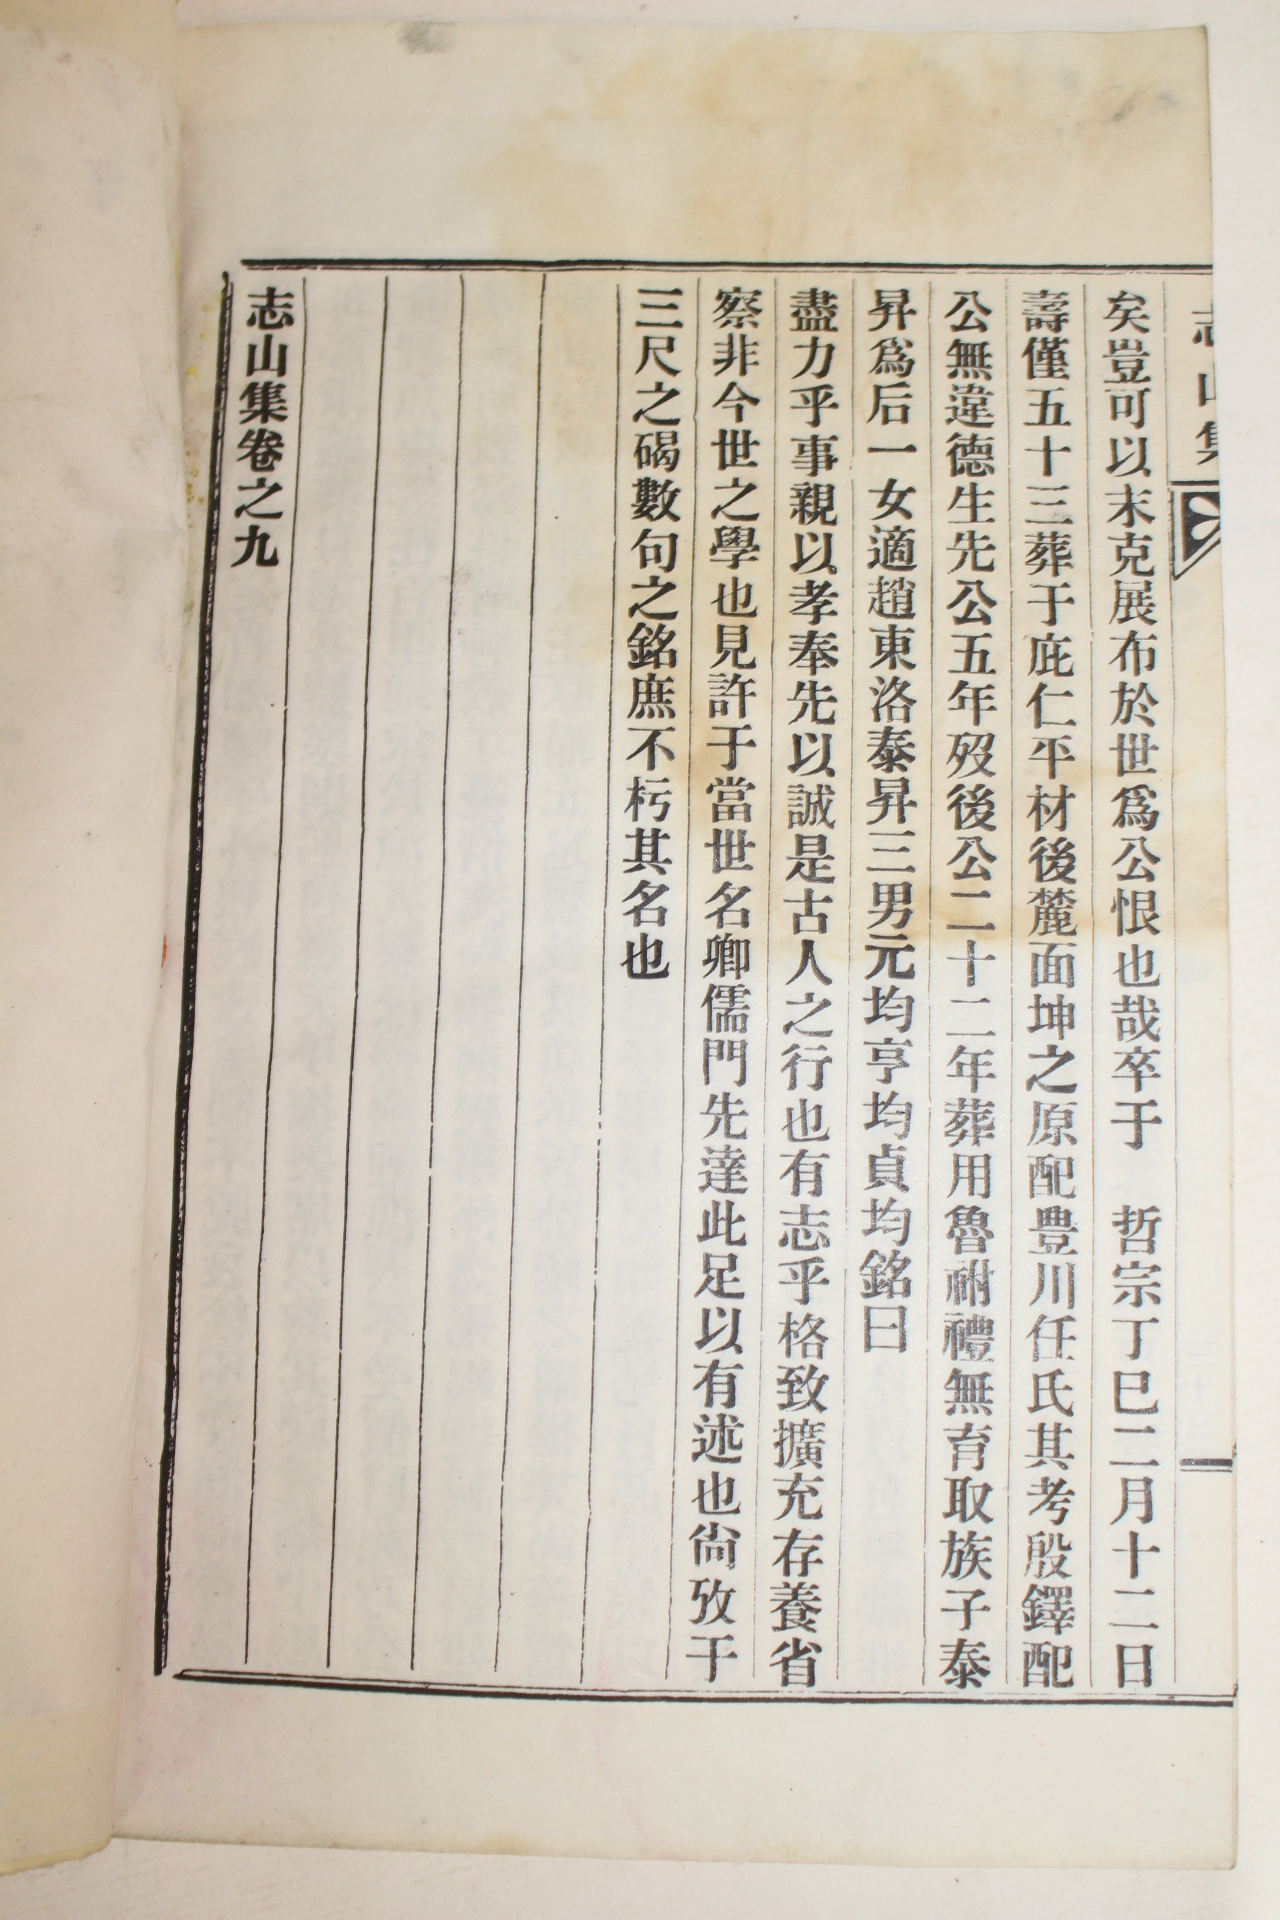 志山集
矣豈可以未克展布於世爲公恨也哉卒于　哲宗丁巳二月十二日
壽僅五十三葬于庇仁平材後麓面坤之原配豊川任氏其考殷鐸配
公無違德生先公五年歿後公二十二年葬用魯祔禮無育取族子泰
昇爲后一女適趙東洛泰昇三男元均亨均貞均銘曰
盡力乎事親以孝奉先以誠是古人之行也有志乎格致擴充存養省
察非今世之學也見許于當世名卿儒門先達此足以有述也尙攷于
三尺之碣數句之銘庶不朽其名也
志山集卷之九